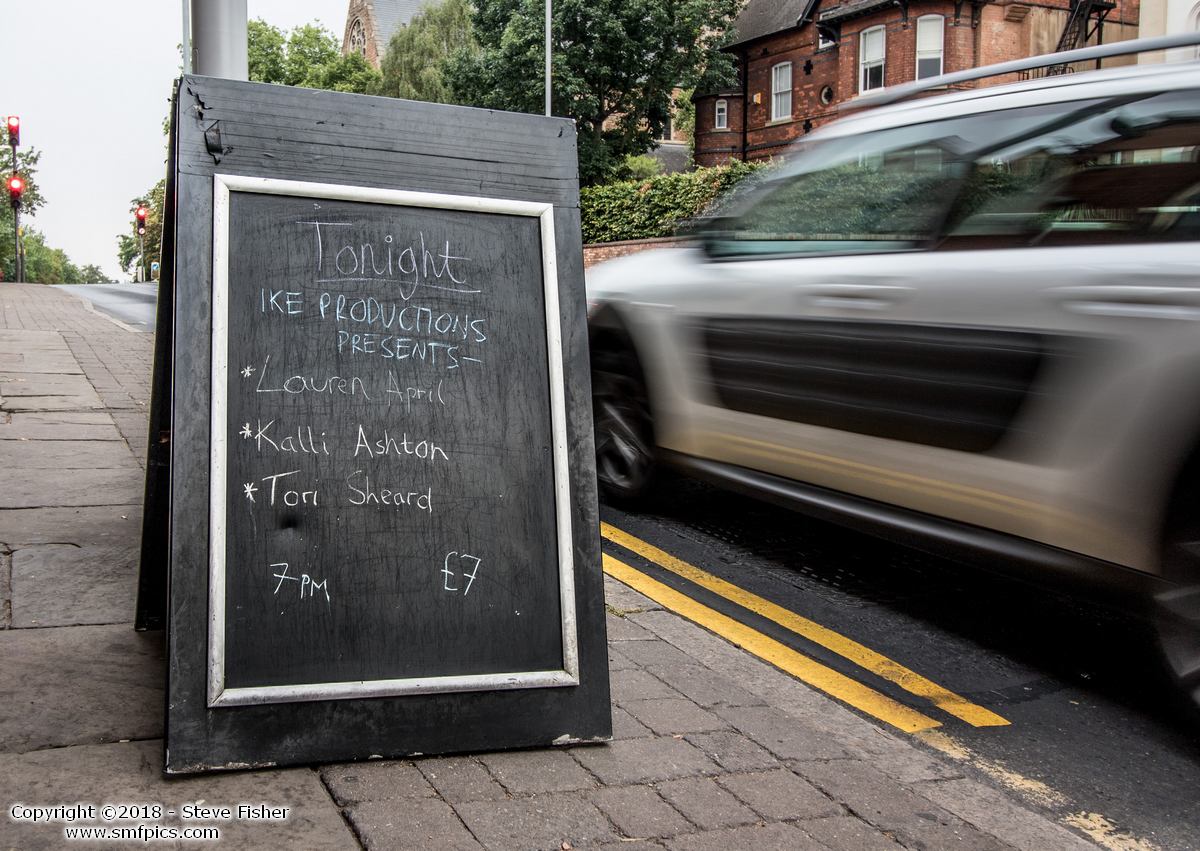 Tonight
IKE PRODUCTIONS
PRESENTS-
* Lauren April
* Kalli Ashton
* Tori Sheard
7PM £7
Copyright ©2018 - Steve Fisher
www.smfpics.com